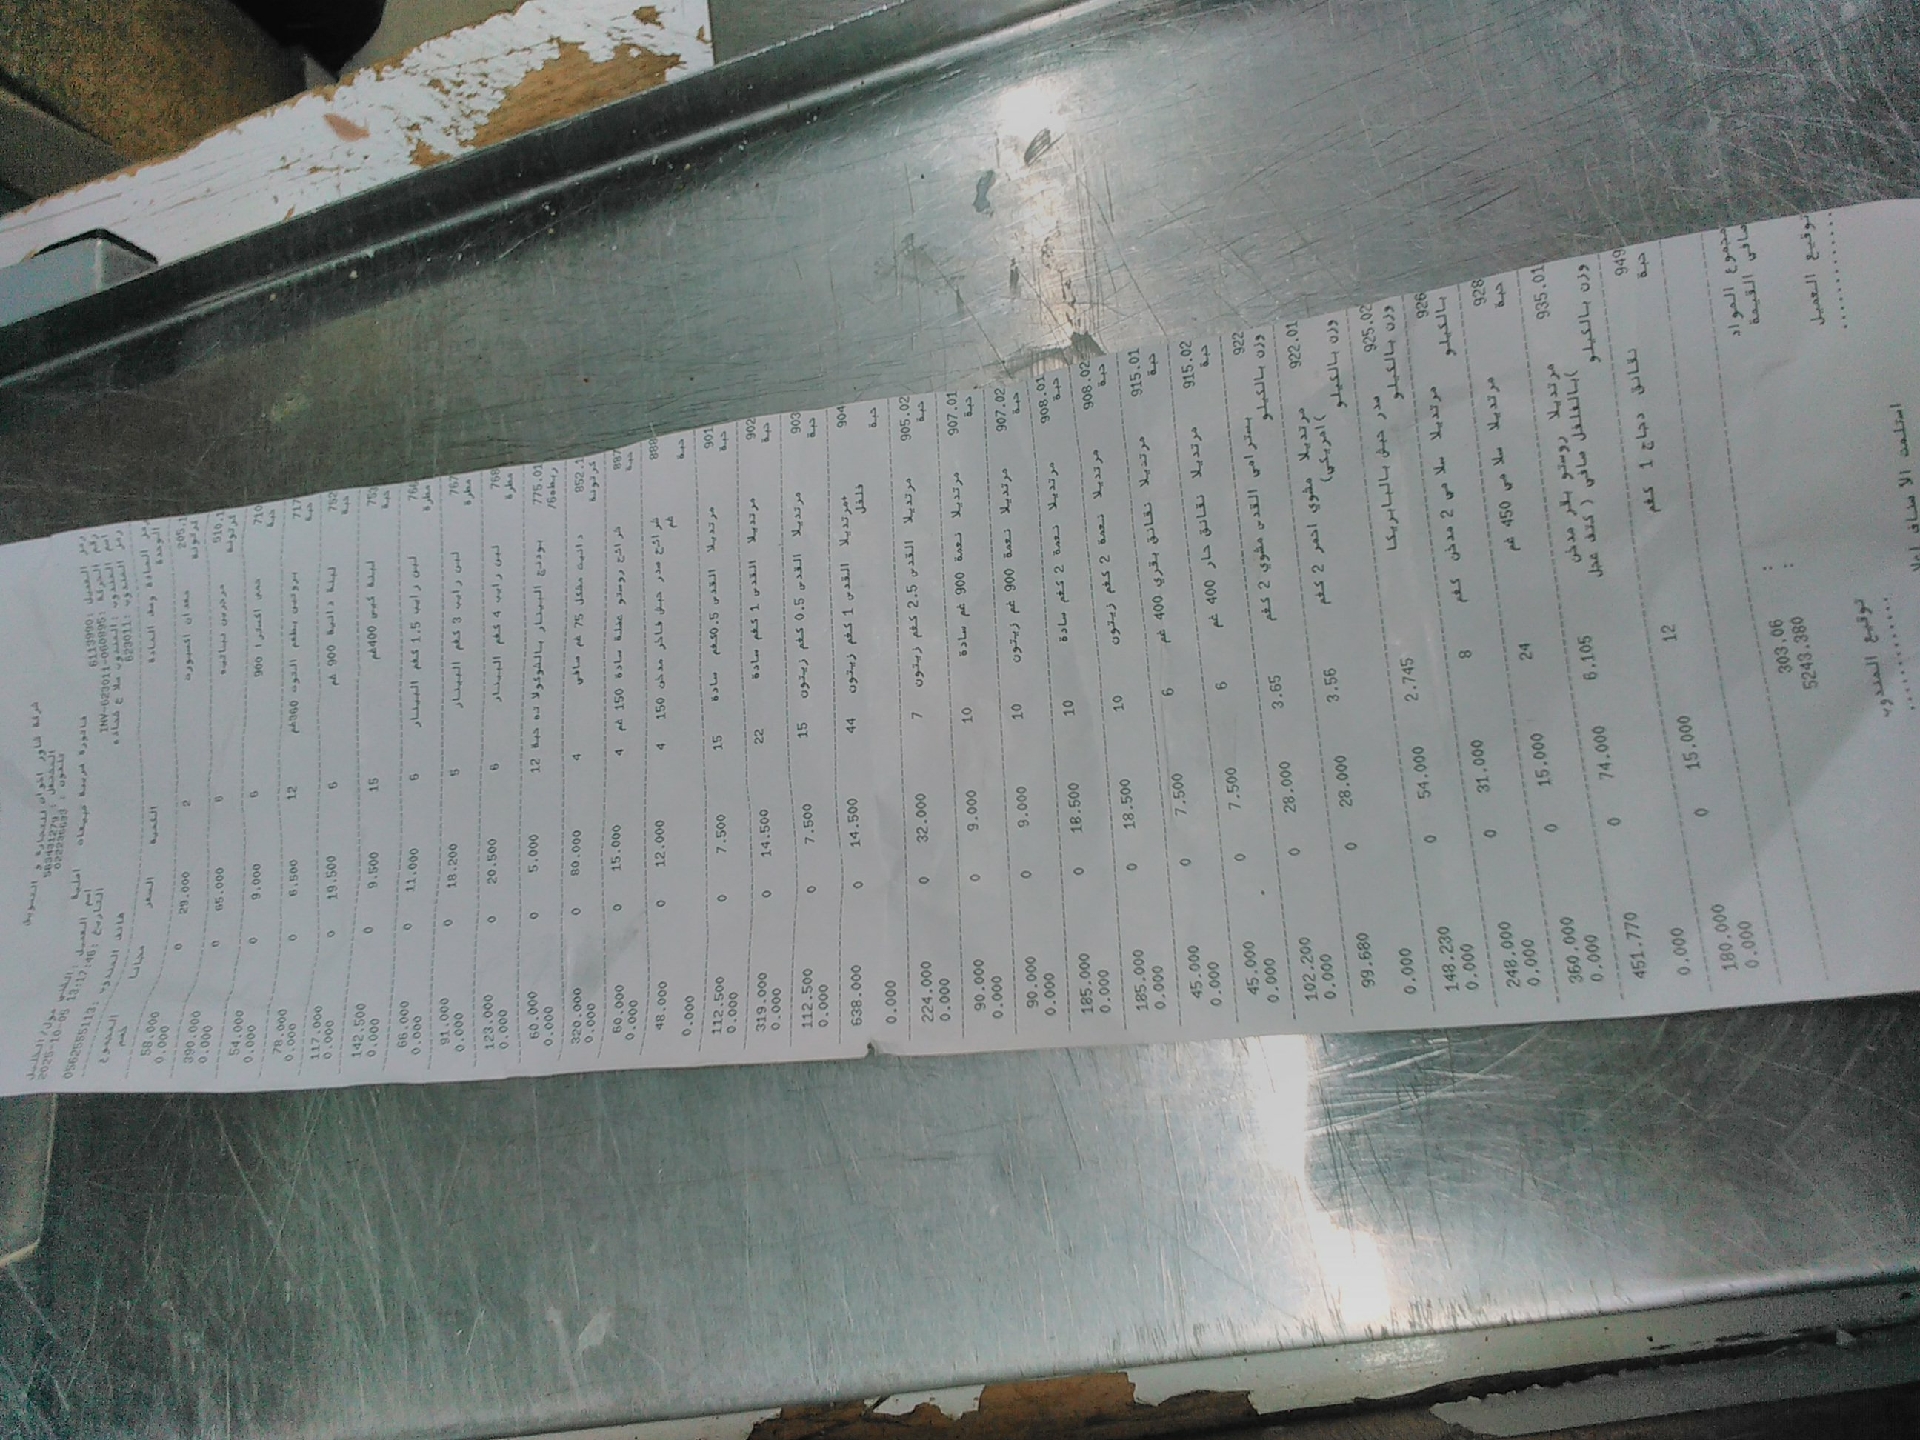 شركة شاور اخوان للتجارة و التسويق
المشتغل: 563431279
تلفون: 022235633
فاتورة ضريبة مبيعات اصلية
رمز العميل: 6113990 اسم العميل:
رقم الحركة: INV-623011-060895 التاريخ: 2025-10-05 13:17:46
اسم المندوب: المندوب
رمز المندوب: 623011 هاتف المندوب: 0562555113
رمز المادة وصف المادة الكمية السعر مجانا المجموع
الوحدة خصم
205.1 2 29.000 0 58.000
كرتونة 0.000
510.1 مرجرين نباتيه 6 65.000 0 390.000
كرتونة 0.000
710 900 6 9.000 0 54.000
حبة 0.000
717 360غم 12 6.500 0 78.000
حبة 0.000
752 لبنة دانية 900 غم 6 19.500 0 117.000
حبة 0.000
753 لبنة كيس 400غم 15 9.500 0 142.500
حبة 0.000
لبن رايب 1.5 كغم البينار 6 11.000 0 66.000
0.000
767 لبن رايب 3 كغم البينار 5 18.200 0 91.000
0.000
768 لبن رايب 4 كغم البينار 6 20.500 0 123.000
0.000
775.01 بودنج البينار بالشوكولاته حبة 12 5.000 0 60.000
0.000
852.1 دانيت مشكل 75 غم صافي 4 80.000 0 320.000
كرتونة 0.000
887 شرائح روستو عجلة سادة 150 غم 4 15.000 0 60.000
حبة 0.000
888 شرائح صدر حبش فاخر مدخن 150 4 12.000 0 48.000
حبة غم 0.000
901 مرتديلا القدس 0.5كغم سادة 15 7.500 0 112.500
حبة 0.000
902 مرتديلا القدس 1 كغم سادة 22 14.500 0 319.000
حبة 0.000
903 مرتديلا القدس 0.5 كغم زيتون 15 7.500 0 112.500
حبة 0.000
904 مرتديلا القدس 1 كغم زيتون 44 14.500 0 638.000
حبة فلفل 0.000
905.02 مرتديلا القدس 2.5 كغم زيتون 7 32.000 0 224.000
حبة 0.000
907.01 مرتديلا نعمة 900 غم سادة 10 9.000 0 90.000
حبة 0.000
907.02 مرتديلا نعمة 900 غم زيتون 10 9.000 0 90.000
حبة 0.000
908.01 مرتديلا نعمة 2 كغم سادة 10 18.500 0 185.000
حبة 0.000
908.02 مرتديلا نعمة 2 كغم زيتون 10 18.500 0 185.000
حبة 0.000
915.01 مرتديلا نقانق بقري 400 غم 6 7.500 0 45.000
حبة 0.000
915.02 مرتديلا نقانق حار 400 غم 6 7.500 0 45.000
حبة 0.000
922 بسترامي القدس مشوي 2 كغم 3.65 28.000 0 102.200
وزن بالكيلو 0.000
922.01 مرتديلا مشوي احمر 2 كغم 3.56 28.000 0 99.680
وزن بالكيلو (امريكي) 0.000
925.02 صدر حبش بالبابريكا 2.745 54.000 0 148.230
وزن بالكيلو 0.000
926 مرتديلا سلامي 2 مدخن كغم 8 31.000 0 248.000
بالكيلو 0.000
928 مرتديلا سلامي 450 غم 24 15.000 0 360.000
حبة 0.000
935.01 مرتديلا روستو بقر مدخن 6.105 74.000 0 451.770
وزن بالكيلو (بالفلفل صافي ( كتف عجل 0.000
949 نقانق دجاج 1 كغم 12 15.000 0 180.000
حبة 0.000
مجموع المواد : 303.06
صافي القيمة : 5243.380
توقيع العميل توقيع المندوب
استلمت الاصناف اعلا